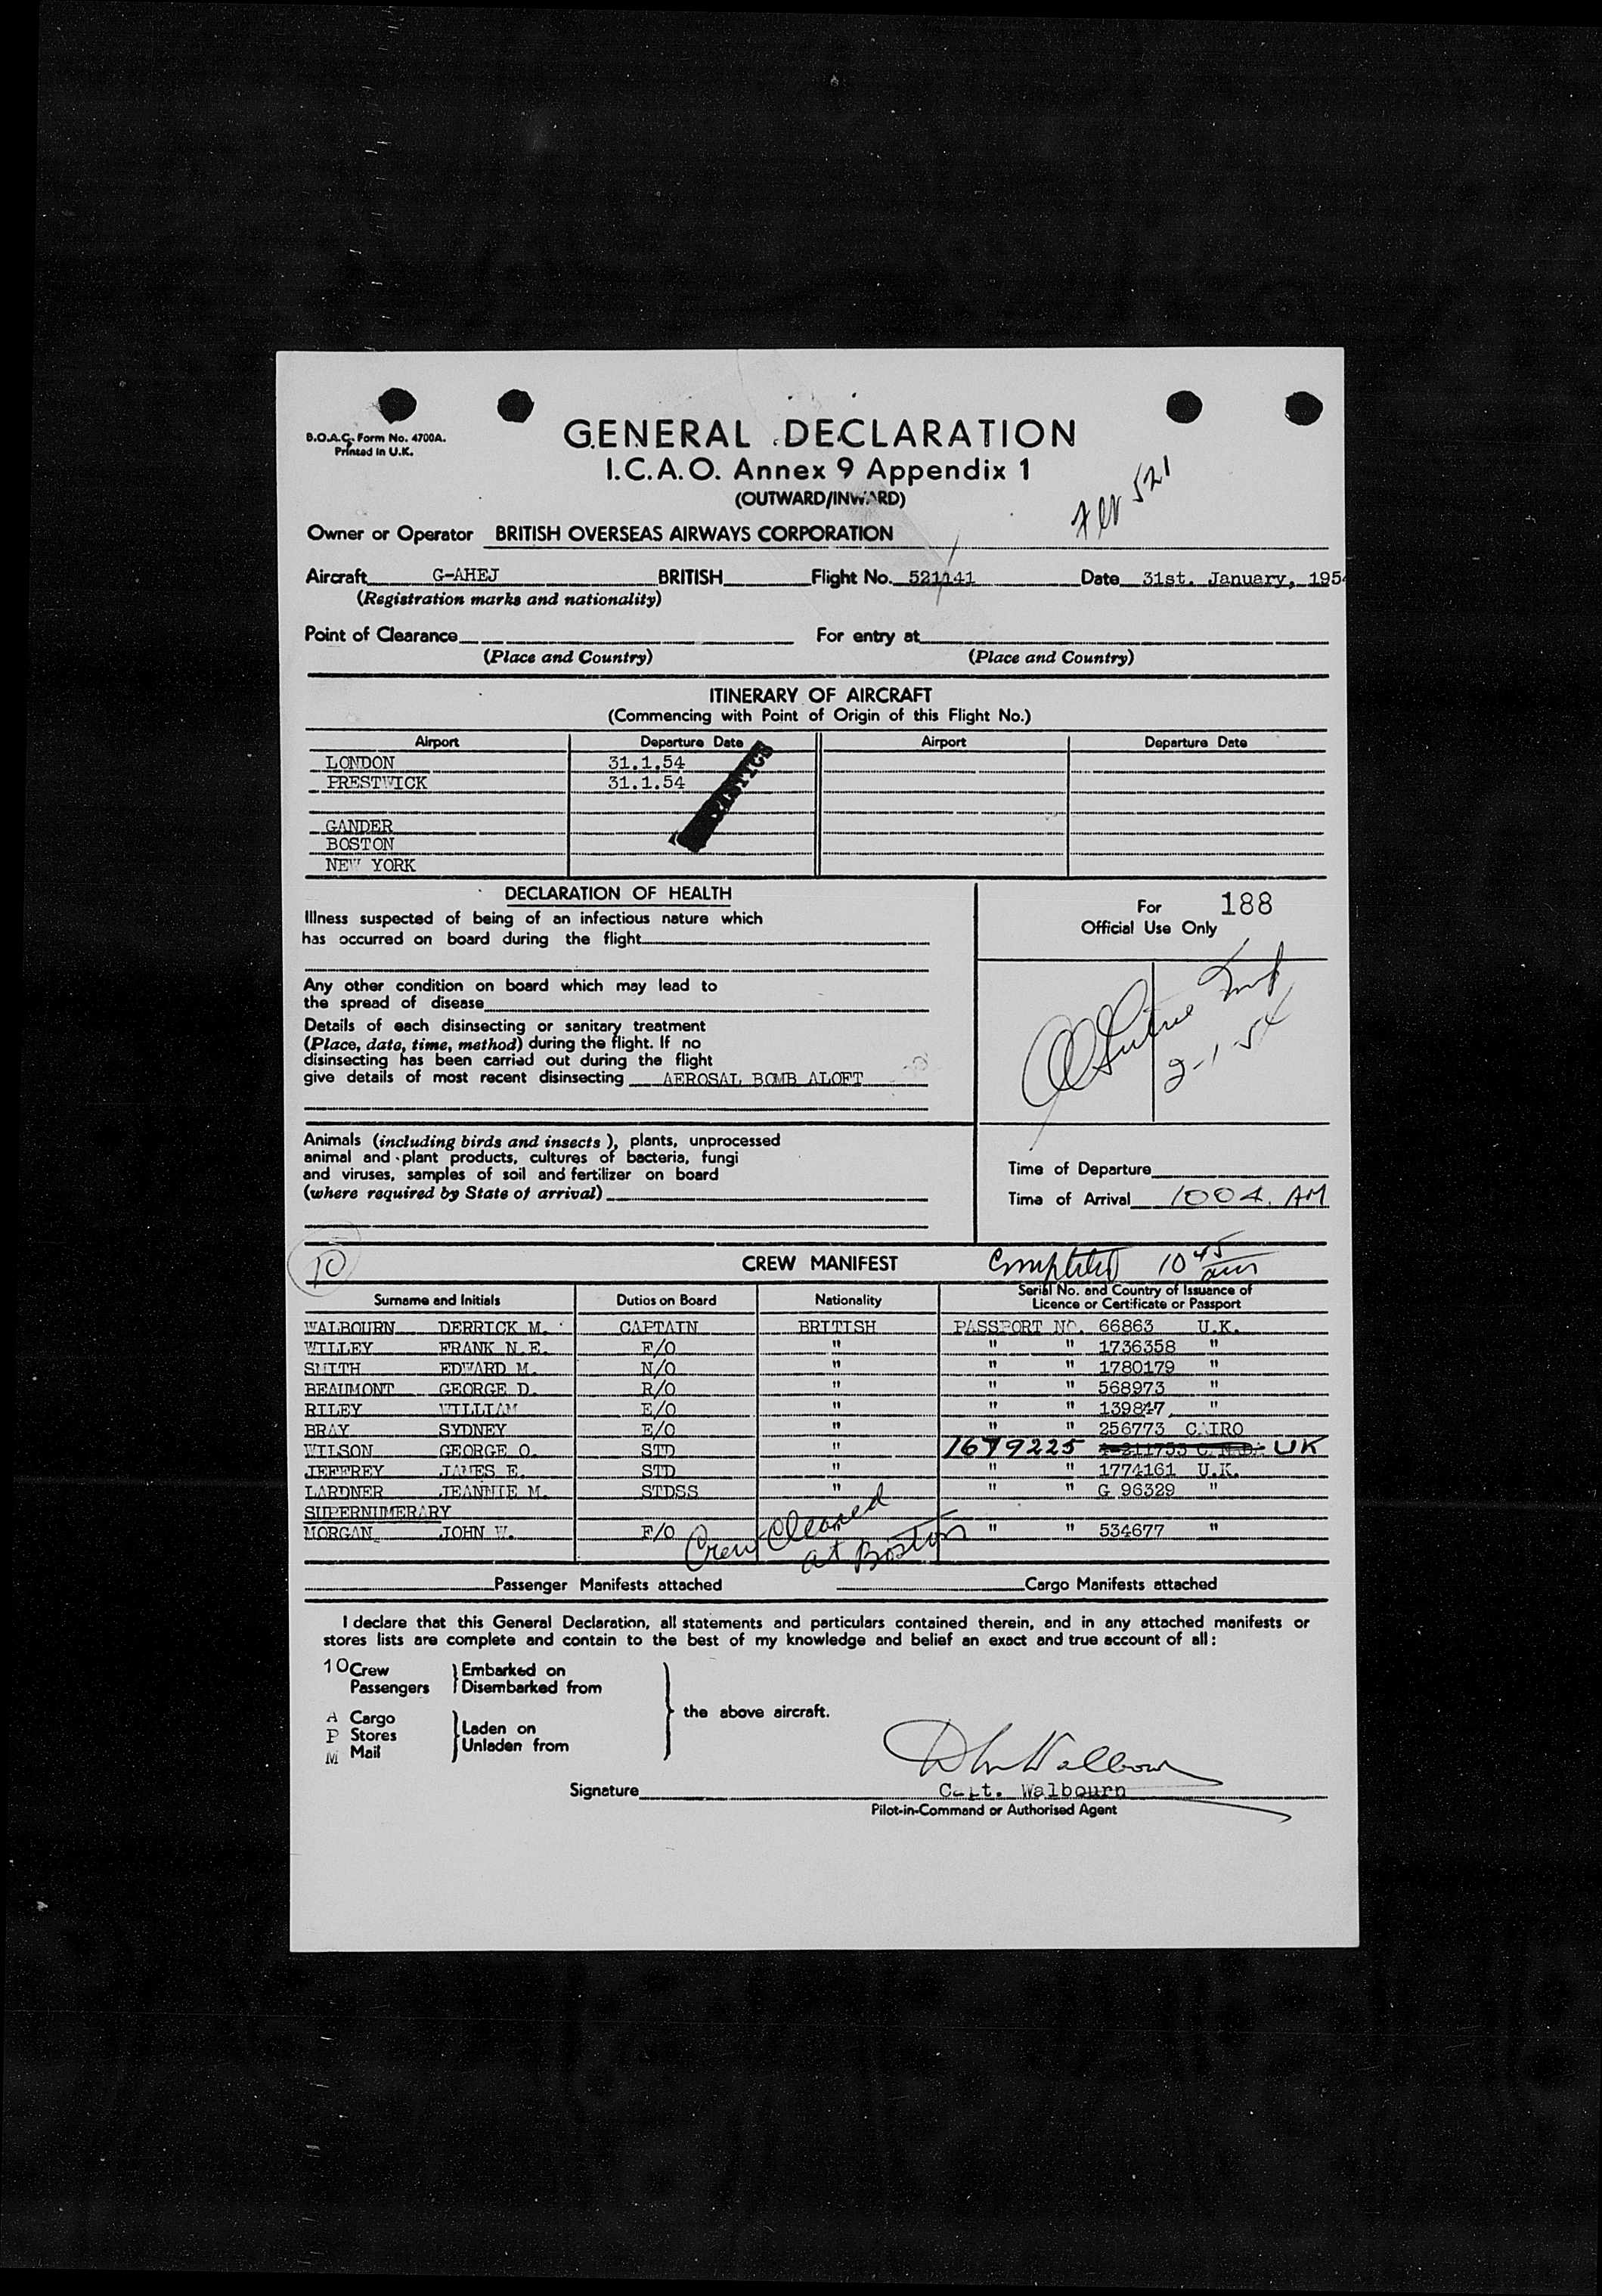 B.O.A.C. Form No. 4700A.
Printed in U.K.
GENERAL DECLARATION
I.C.A.O. Annex 9 Appendix 1
(OUTWARD/INWARD)
521
Owner or Operator BRITISH OVERSEAS AIRWAYS CORPORATION
Aircraft G-AHEJ BRITISH Flight No. 521/141 Date 31st. January, 1954
(Registration marks and nationality)
Point of Clearance For entry at
(Place and Country) (Place and Country)
ITINERARY OF AIRCRAFT
(Commencing with Point of Origin of this Flight No.)
Airport Departure Date Airport Departure Date
LONDON 31.1.54
PRESTWICK 31.1.54
GANDER
BOSTON
NEW YORK
DECLARATION OF HEALTH
Illness suspected of being of an infectious nature which
has occurred on board during the flight
For 188
Official Use Only
Any other condition on board which may lead to
the spread of disease
Details of each disinsecting or sanitary treatment
(Place, date, time, method) during the flight. If no
disinsecting has been carried out during the flight
give details of most recent disinsecting AEROSAL BOMB ALOFT
2-1-54
Animals (including birds and insects), plants, unprocessed
animal and plant products, cultures of bacteria, fungi
and viruses, samples of soil and fertilizer on board
(where required by State of arrival)
Time of Departure
Time of Arrival 1004. AM
10 CREW MANIFEST Completed 10 45 am
Surname and Initials Duties on Board Nationality Serial No. and Country of Issuance of
Licence or Certificate or Passport
WALBOURN DERRICK M. CAPTAIN BRITISH PASSPORT NO. 66863 U.K.
WILLEY FRANK N.E. F/O " " " 1736358 "
SMITH EDWARD M. N/O " " " 1780179 "
BEAUMONT GEORGE D. R/O " " " 568973 "
RILEY WILLIAM E/O " " " 139847 "
BRAY SYDNEY E/O " " " 256773 CAIRO
WILSON GEORGE O. STD " 1679225 UK
JEFFREY JAMES E. STD " " " 1774161 U.K.
LARDNER JEANNIE M. STDSS " " " G 96329 "
SUPERNUMERARY
MORGAN JOHN W. F/O " " 534677 "
Crew Cleared
at Boston
Passenger Manifests attached Cargo Manifests attached
I declare that this General Declaration, all statements and particulars contained therein, and in any attached manifests or
stores lists are complete and contain to the best of my knowledge and belief an exact and true account of all:
10 Crew Embarked on
Passengers Disembarked from
the above aircraft.
A Cargo
P Stores Laden on
M Mail Unladen from
Signature Capt. Walbourn
Pilot-in-Command or Authorised Agent